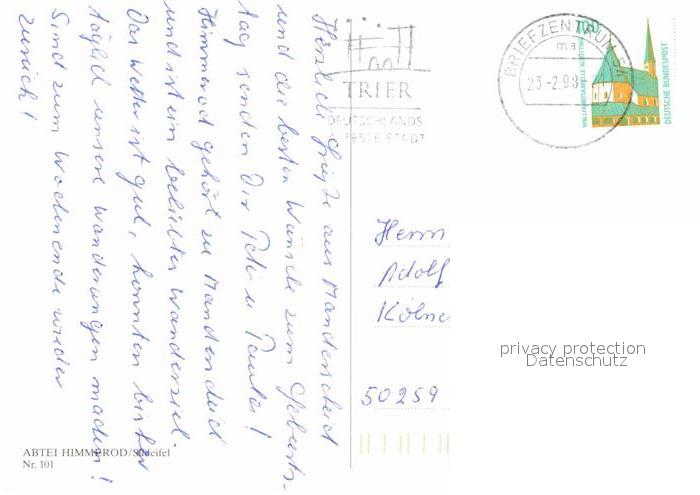 Herzliche Grüße aus Manderscheid
und die besten Wünsche zum Geburts-
tag senden Dir
Himmerod gehört zu Manderscheid
und ist ein beliebter Wanderziel.
Das Wetter ist gut, konnten bisher
täglich unsere Wanderungen machen!
Sind zum Wochenende wieder
zurück!
ABTEI HIMMEROD/Südeifel
Nr. 101
TRIER
DEUTSCHLANDS
ÄLTESTE STADT
BRIEFZENTRUM 54
ma
23-2.98
100
WALLFAHRTSKAPELLE ALTÖTTING
DEUTSCHE BUNDESPOST
Herrn
Adolf
Kölne
50259
privacy protection
Datenschutz